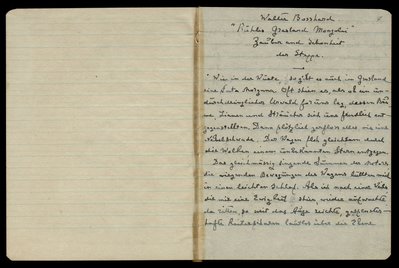 Walter Bosshard.
"Kühles Grasland Mongolei"
Zauber und Schönheit
der Steppe.
"Wie in der Wüste, so gibt es auch im Grasland
eine Fata Morgana. Oft schien es, als ob ein un-
durchdringlicher Urwald vor uns lag, dessen Bäu
me, Lianen und Sträucher sich uns feindlich ent
gegenstellten. Dann plötzlich zerfloss alles wie eine
Nebelschwade. Der Wagen flog gleichsam durch
die Wolken einem unbekannten Stern entgegen.
Das gleichmässig singende Summen des Motors
die wiegenden Bewegungen des Wagens hüllten mich
in einen leichten Schlaf. Als ich nach einer Weile
die mir eine Ewigkeit schien, wieder aufwachte
da ritten, so weit das Auge reichte, gespenster-
hafte Reiterscharen lautlos über die Ebene